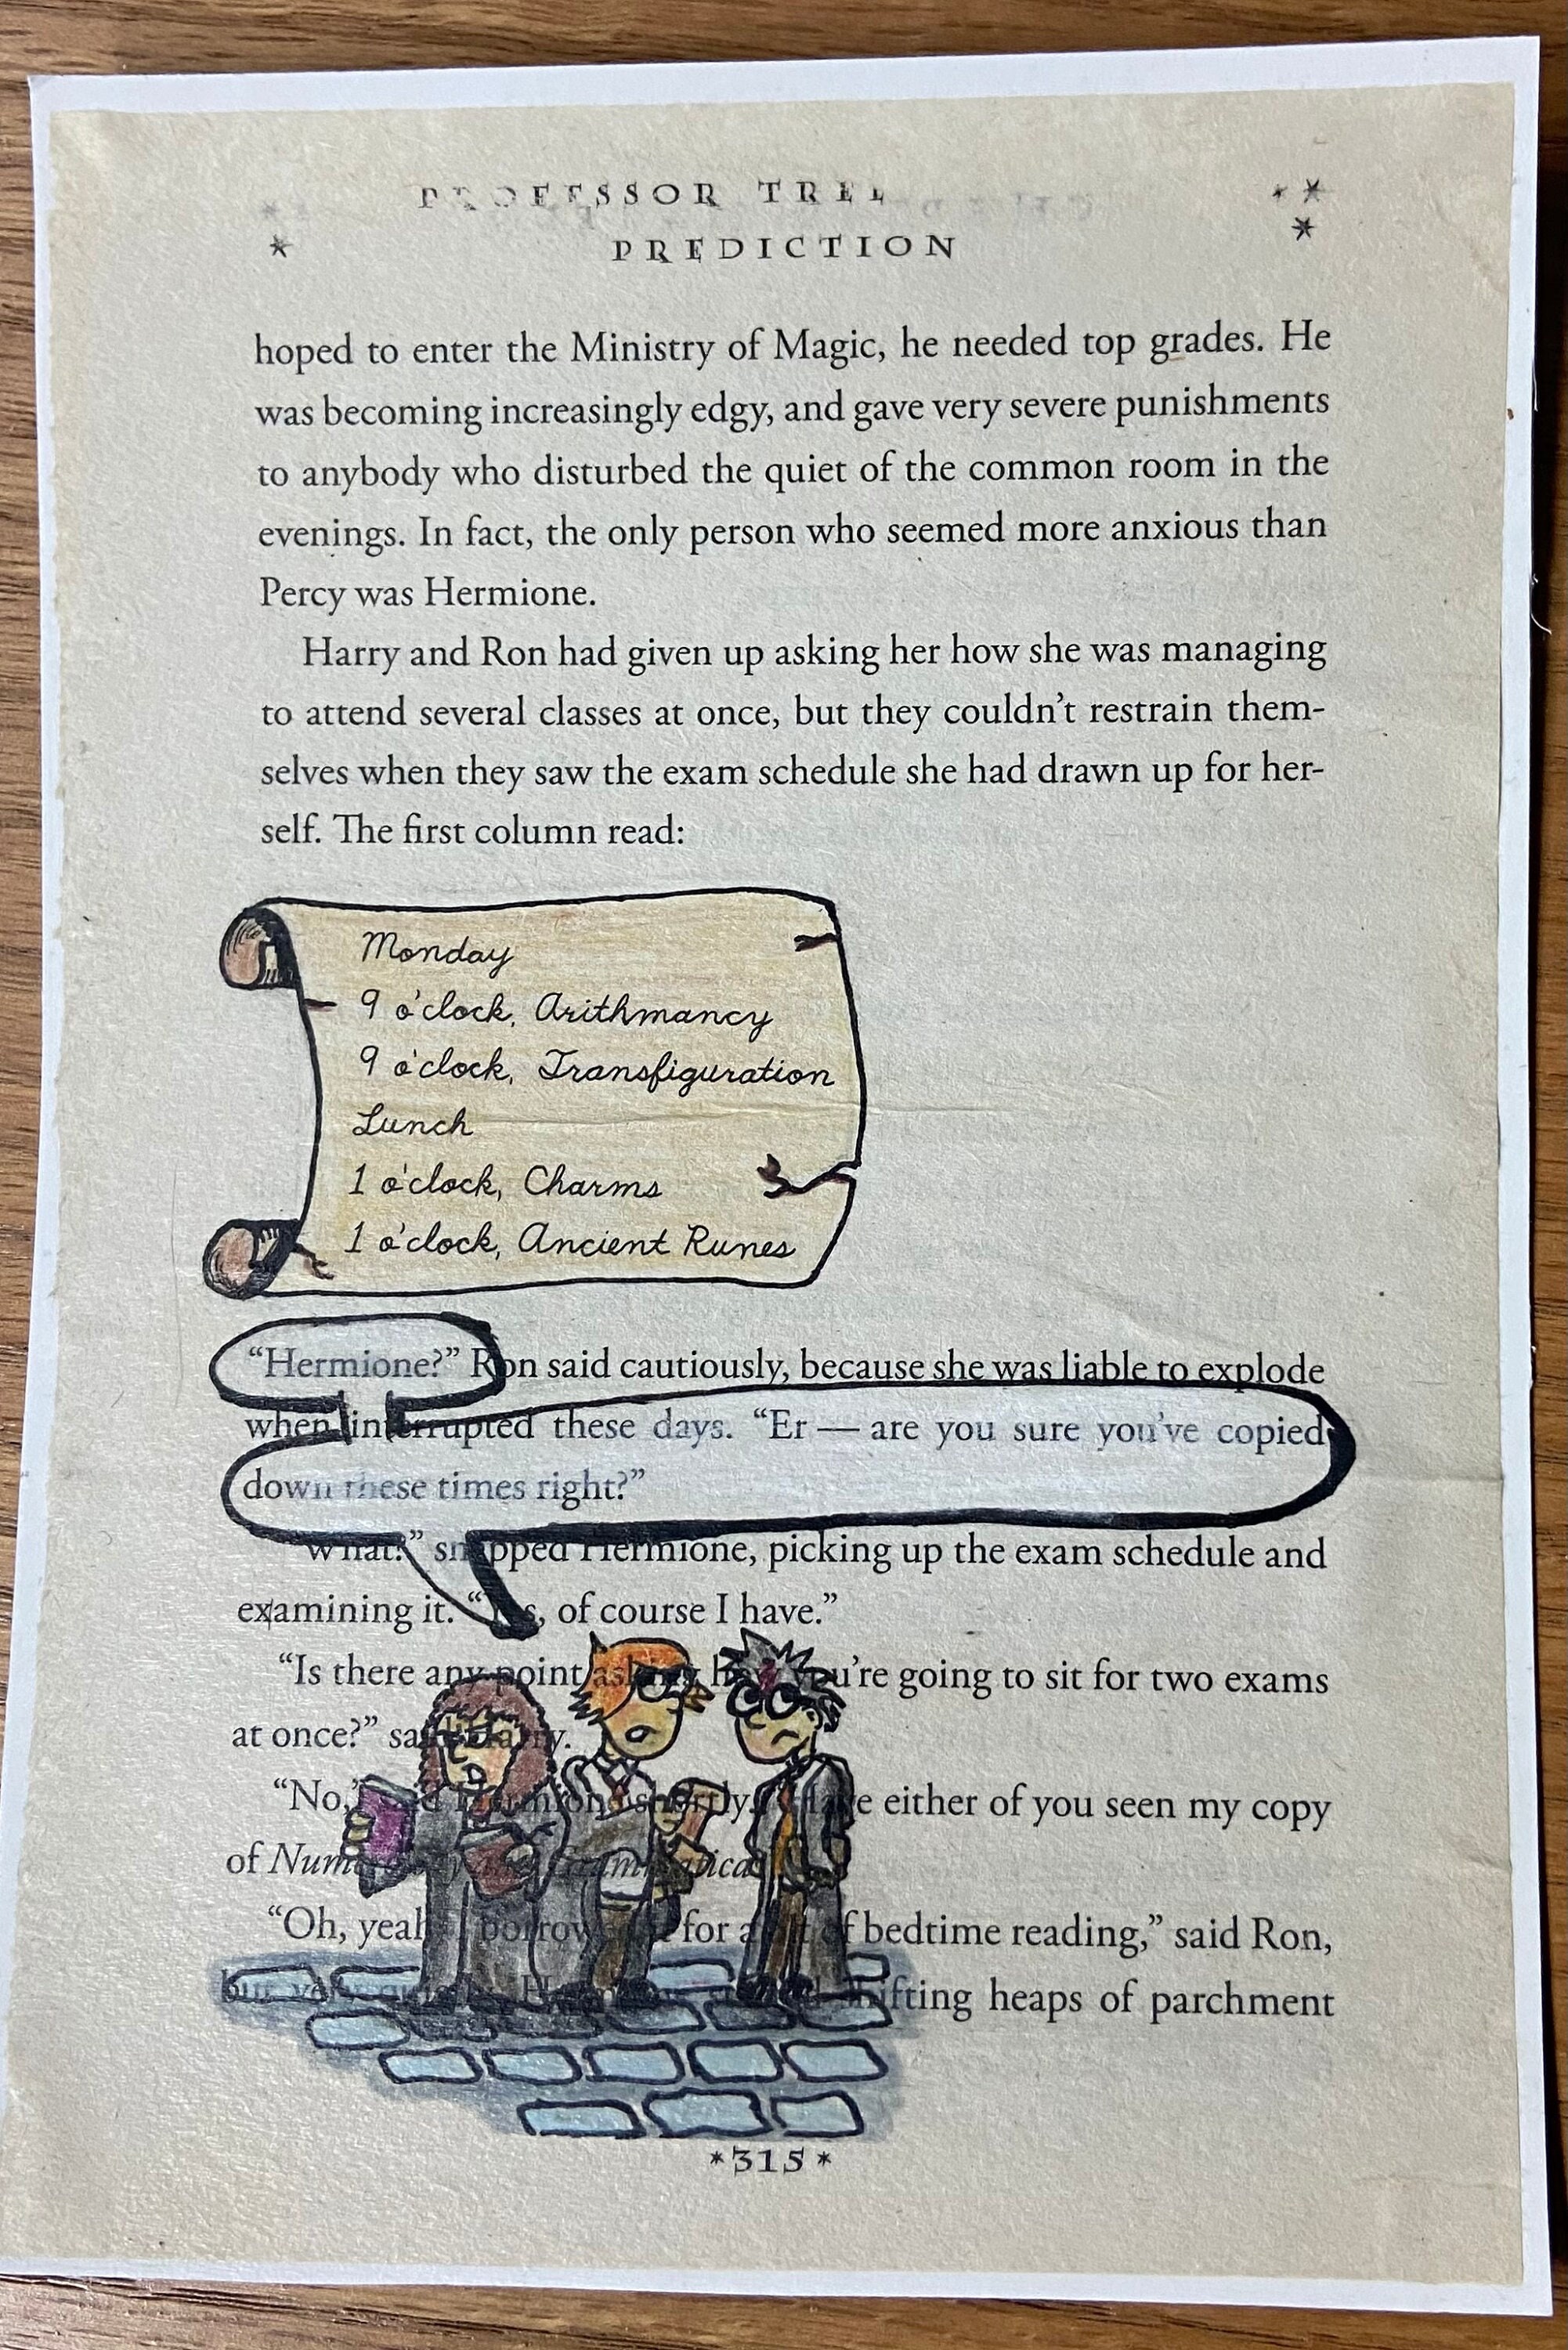 PROFESSOR TREL
PREDICTION
hoped to enter the Ministry of Magic, he needed top grades. He
was becoming increasingly edgy, and gave very severe punishments
to anybody who disturbed the quiet of the common room in the
evenings. In fact, the only person who seemed more anxious than
Percy was Hermione.
Harry and Ron had given up asking her how she was managing
to attend several classes at once, but they couldn't restrain them-
selves when they saw the exam schedule she had drawn up for her-
self. The first column read:
Monday
9 o'clock, Arithmancy
9 o'clock, Transfiguration
Lunch
1 o'clock, Charms
1 o'clock, Ancient Runes
"Hermione?" Ron said cautiously, because she was liable to explode
when interrupted these days. "Er — are you sure you've copied
down these times right?"
"What?" snapped Hermione, picking up the exam schedule and
examining it. "Yes, of course I have."
"Is there any point asking how you're going to sit for two exams
at once?" said Harry.
"No," said Hermione shortly. "Have either of you seen my copy
of
"Oh, yeah, borrowed it for a bit of bedtime reading," said Ron,
but very shifting heaps of parchment
*315*